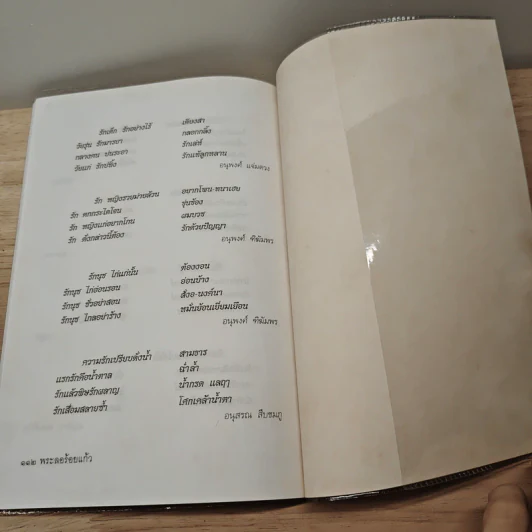 รักเด็ก รักอย่างไร้ เดียงสา
วัยรุ่น รักมารยา กลอกกลิ้ง
กลางคน ปรารถนา รักเล่ห์
วัยแก่ รักปรี่ซึ้ง รักแท้ลูกหลาน
อนุพงศ์ แจ่มดวง
รัก หญิงรวยม่ายล้วน อยากโซน ทนาเฮย
รัก ตกกระไดโจน ขุ่นข้อง
รัก หญิงแก่อยากโกน แมบวช
รัก ดั่งกล่าวนี้ต้อง รักด้วยปัญญา
อนุพงศ์ ฑีฆัมพร
รักนุช ไก่แก่นั้น ต้องงอน
รักนุช ไก่อ่อนรอน อ่อนบ้าง
รักนุช ชั่วอย่าสอน สั่งอ-นงค์นา
รักนุช ไกลอย่าร้าง หมั่นย้อนเยี่ยมเยือน
อนุพงศ์ ฑีฆัมพร
ความรักเปรียบดั่งน้ำ สามธาร
แรกรักคือน้ำตาล ฉ่ำล้ำ
รักแล้วพิษรักผลาญ น้ำกรด แลฤๅ
รักเสื่อมสลายซ้ำ โศกเคล้าน้ำตา
อนุสรณ สืบชมภู
๑๑๒ พระลอร้อยแก้ว